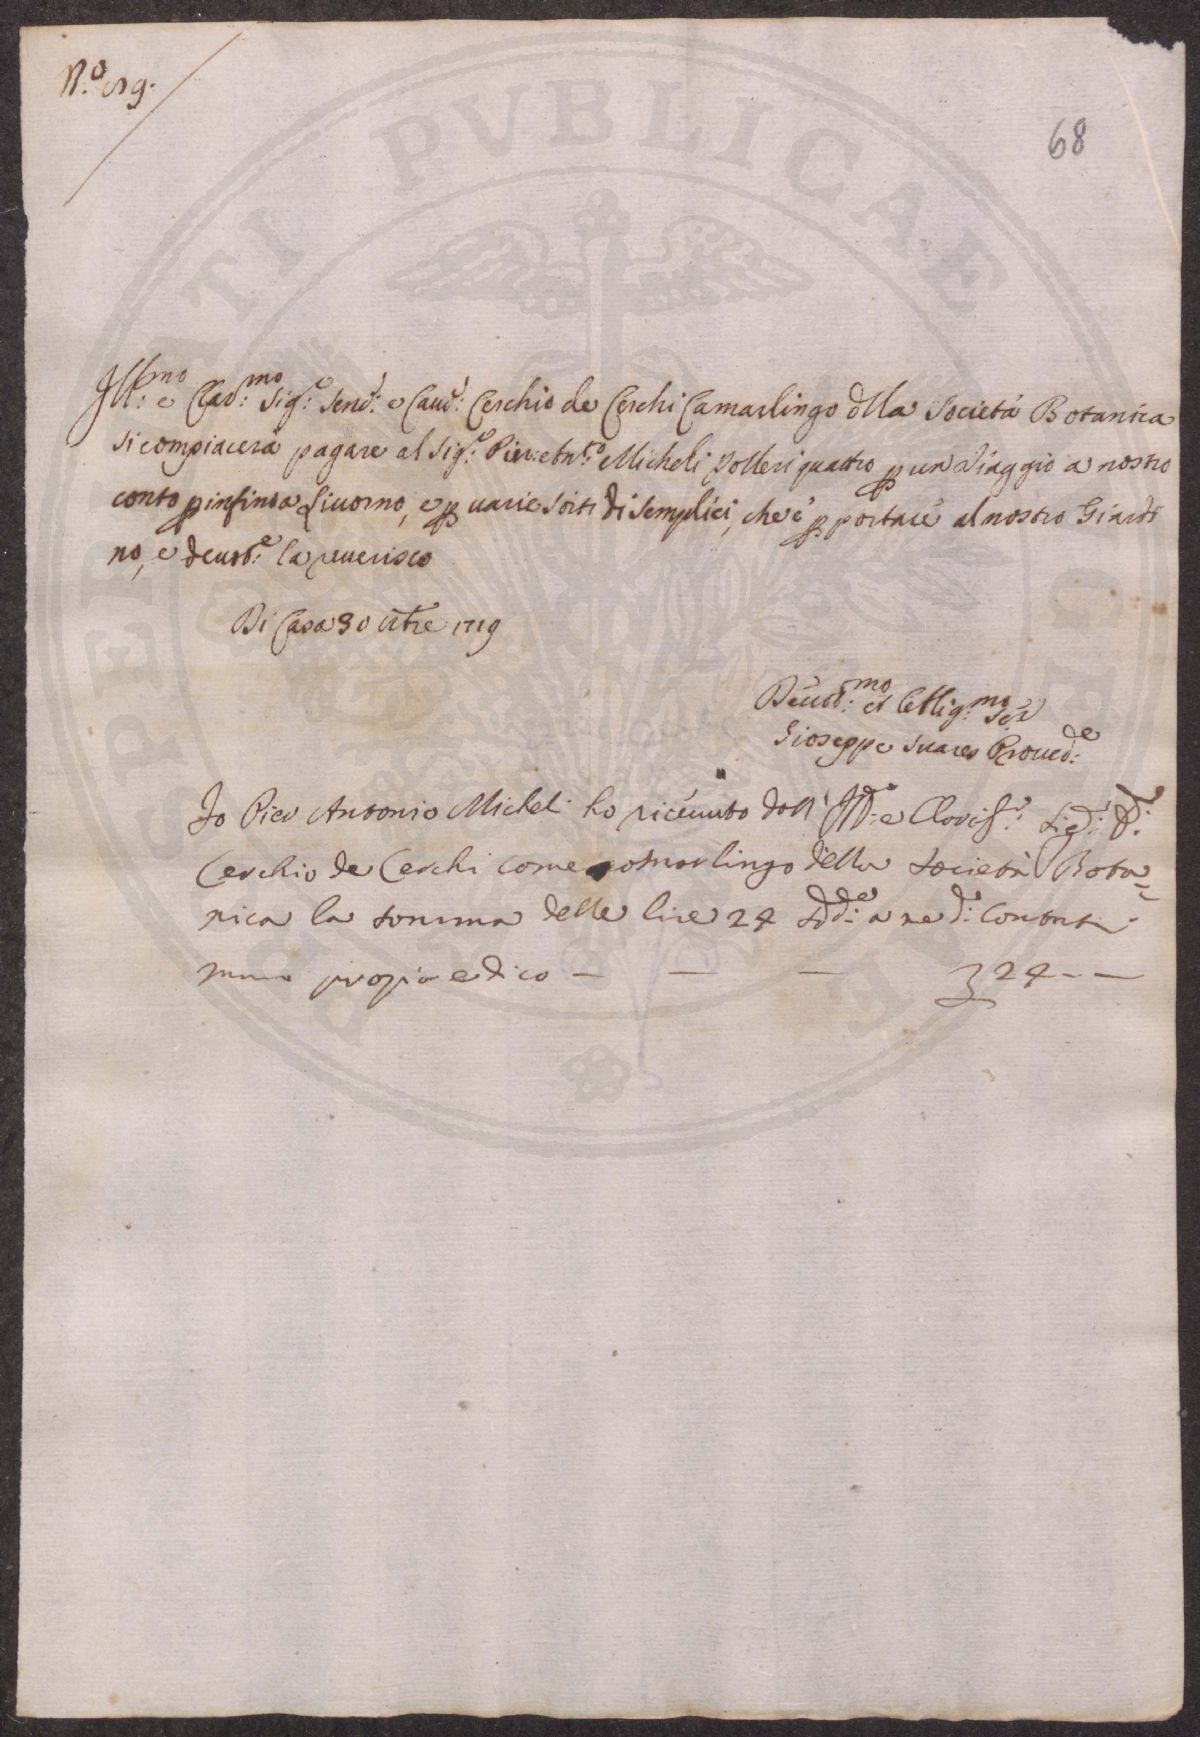 N.o
68
Ill.mo e Clar.mo Sig.e Sen.e e Cav.e Cerchio de Cerchi Camarlingo dlla Società Botanica
si compiacerà pagare al Sig.e Pier: Ant.o Micheli Tolleri quattro p un Viaggio a nostro
conto p infino a Livorno, e p varie sorti di semplici, che è p portare al nostro Giardi
no, e devot.e la riverisco
Di Casa 30 1719
Devot.mo et Obblig.mo Ser.e
Gioseppe Suares Proved.e
Io Pier Antonio Micheli ho riceuuto dall' Ill.e e Clariss.e Sig.
Cerchio de Cerchi come Camarlingo della Società Bota=
nica la somma delle lire 24 contanti
mano propia e dico — — — 24 — —